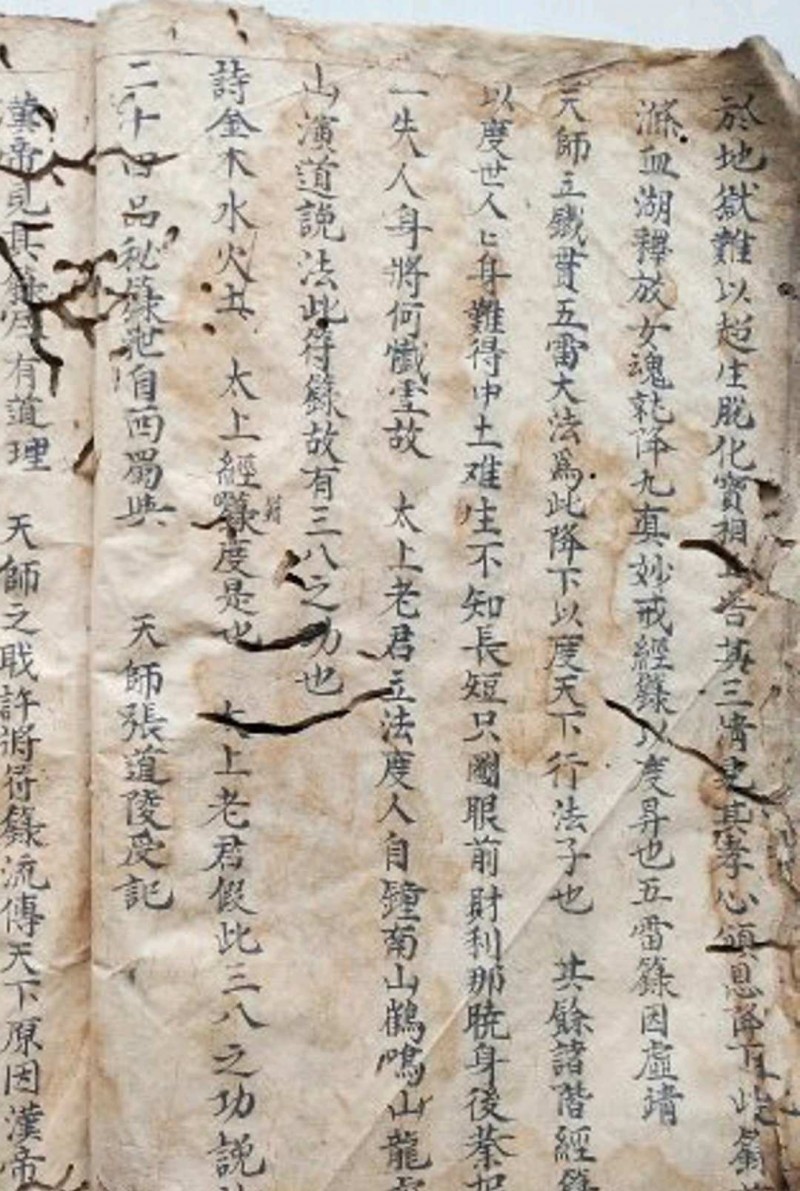 於地獄難以超生脫化寶相告其三情見其孝心頒恩降下此籙
滌血湖釋放女魂乾降九真妙戒經籙以度昇也五雷籙因虛靖
天師立職貫五雷大法為此降下以度天下行法子也 其餘諸階經籙
以度世人匕身難得中土难生不知長短只圖眼前財利那曉身後
一失人身將何懺 故 太上老君立法度人自鐘南山鶴鳴山龍虎
山演道説法此符籙故有三八之功也
詩金木水火土 太上經籙度是也 太上老君假此三八之功説
二十四品秘籙 自西蜀與 天師張道陵受記
漢帝見其籙 有道理 天師之職許將符籙流傳天下原因漢帝